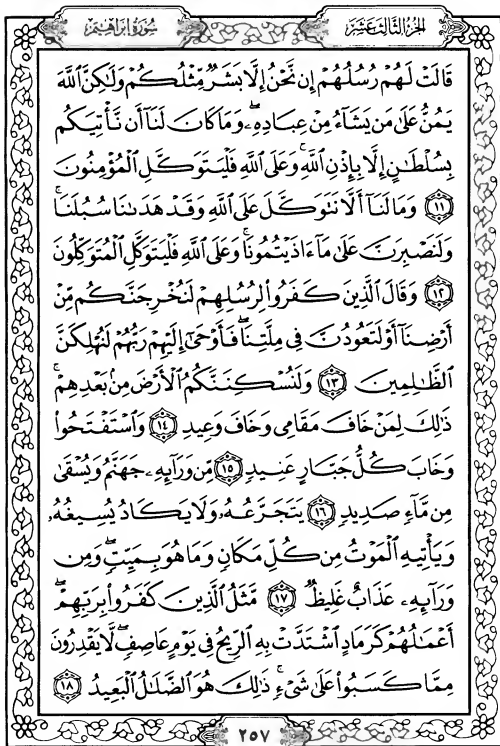 الجزء الثالث عشر
سورة إبراهيم
قَالَتْ لَهُمْ رُسُلُهُمْ إِن نَّحْنُ إِلَّا بَشَرٌ مِّثْلُكُمْ وَلَٰكِنَّ ٱللَّهَ
يَمُنُّ عَلَىٰ مَن يَشَآءُ مِنْ عِبَادِهِۦۖ وَمَا كَانَ لَنَآ أَن نَّأْتِيَكُم
بِسُلْطَٰنٍ إِلَّا بِإِذْنِ ٱللَّهِۚ وَعَلَى ٱللَّهِ فَلْيَتَوَكَّلِ ٱلْمُؤْمِنُونَ
۝١١ وَمَا لَنَآ أَلَّا نَتَوَكَّلَ عَلَى ٱللَّهِ وَقَدْ هَدَىٰنَا سُبُلَنَاۚ
وَلَنَصْبِرَنَّ عَلَىٰ مَآ ءَاذَيْتُمُونَاۚ وَعَلَى ٱللَّهِ فَلْيَتَوَكَّلِ ٱلْمُتَوَكِّلُونَ
۝١٢ وَقَالَ ٱلَّذِينَ كَفَرُوا۟ لِرُسُلِهِمْ لَنُخْرِجَنَّكُم مِّنْ
أَرْضِنَآ أَوْ لَتَعُودُنَّ فِى مِلَّتِنَاۖ فَأَوْحَىٰٓ إِلَيْهِمْ رَبُّهُمْ لَنُهْلِكَنَّ
ٱلظَّٰلِمِينَ ۝١٣ وَلَنُسْكِنَنَّكُمُ ٱلْأَرْضَ مِنۢ بَعْدِهِمْۚ
ذَٰلِكَ لِمَنْ خَافَ مَقَامِى وَخَافَ وَعِيدِ ۝١٤ وَٱسْتَفْتَحُوا۟
وَخَابَ كُلُّ جَبَّارٍ عَنِيدٍ ۝١٥ مِّن وَرَآئِهِۦ جَهَنَّمُ وَيُسْقَىٰ
مِن مَّآءٍ صَدِيدٍ ۝١٦ يَتَجَرَّعُهُۥ وَلَا يَكَادُ يُسِيغُهُۥ
وَيَأْتِيهِ ٱلْمَوْتُ مِن كُلِّ مَكَانٍ وَمَا هُوَ بِمَيِّتٍۖ وَمِن
وَرَآئِهِۦ عَذَابٌ غَلِيظٌ ۝١٧ مَّثَلُ ٱلَّذِينَ كَفَرُوا۟ بِرَبِّهِمْۖ
أَعْمَٰلُهُمْ كَرَمَادٍ ٱشْتَدَّتْ بِهِ ٱلرِّيحُ فِى يَوْمٍ عَاصِفٍۖ لَّا يَقْدِرُونَ
مِمَّا كَسَبُوا۟ عَلَىٰ شَىْءٍۚ ذَٰلِكَ هُوَ ٱلضَّلَٰلُ ٱلْبَعِيدُ ۝١٨
٢٥٧